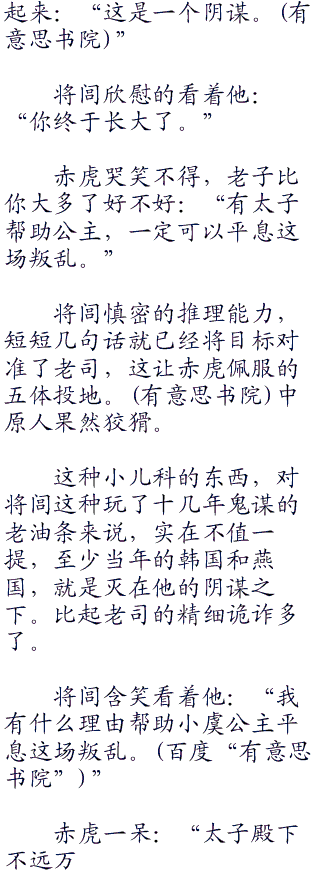 起来：“这是一个阴谋。(有
意思书院)”
将闾欣慰的看着他：
“你终于长大了。”
赤虎哭笑不得，老子比
你大多了好不好：“有太子
帮助公主，一定可以平息这
场叛乱。”
将闾慎密的推理能力，
短短几句话就已经将目标对
准了老司，这让赤虎佩服的
五体投地。(有意思书院)中
原人果然狡猾。
这种小儿科的东西，对
将闾这种玩了十几年鬼谋的
老油条来说，实在不值一
提，至少当年的韩国和燕
国，就是灭在他的阴谋之
下。比起老司的精细诡诈多
了。
将闾含笑看着他：“我
有什么理由帮助小虞公主平
息这场叛乱。(百度“有意思
书院”)”
赤虎一呆：“太子殿下
不远万